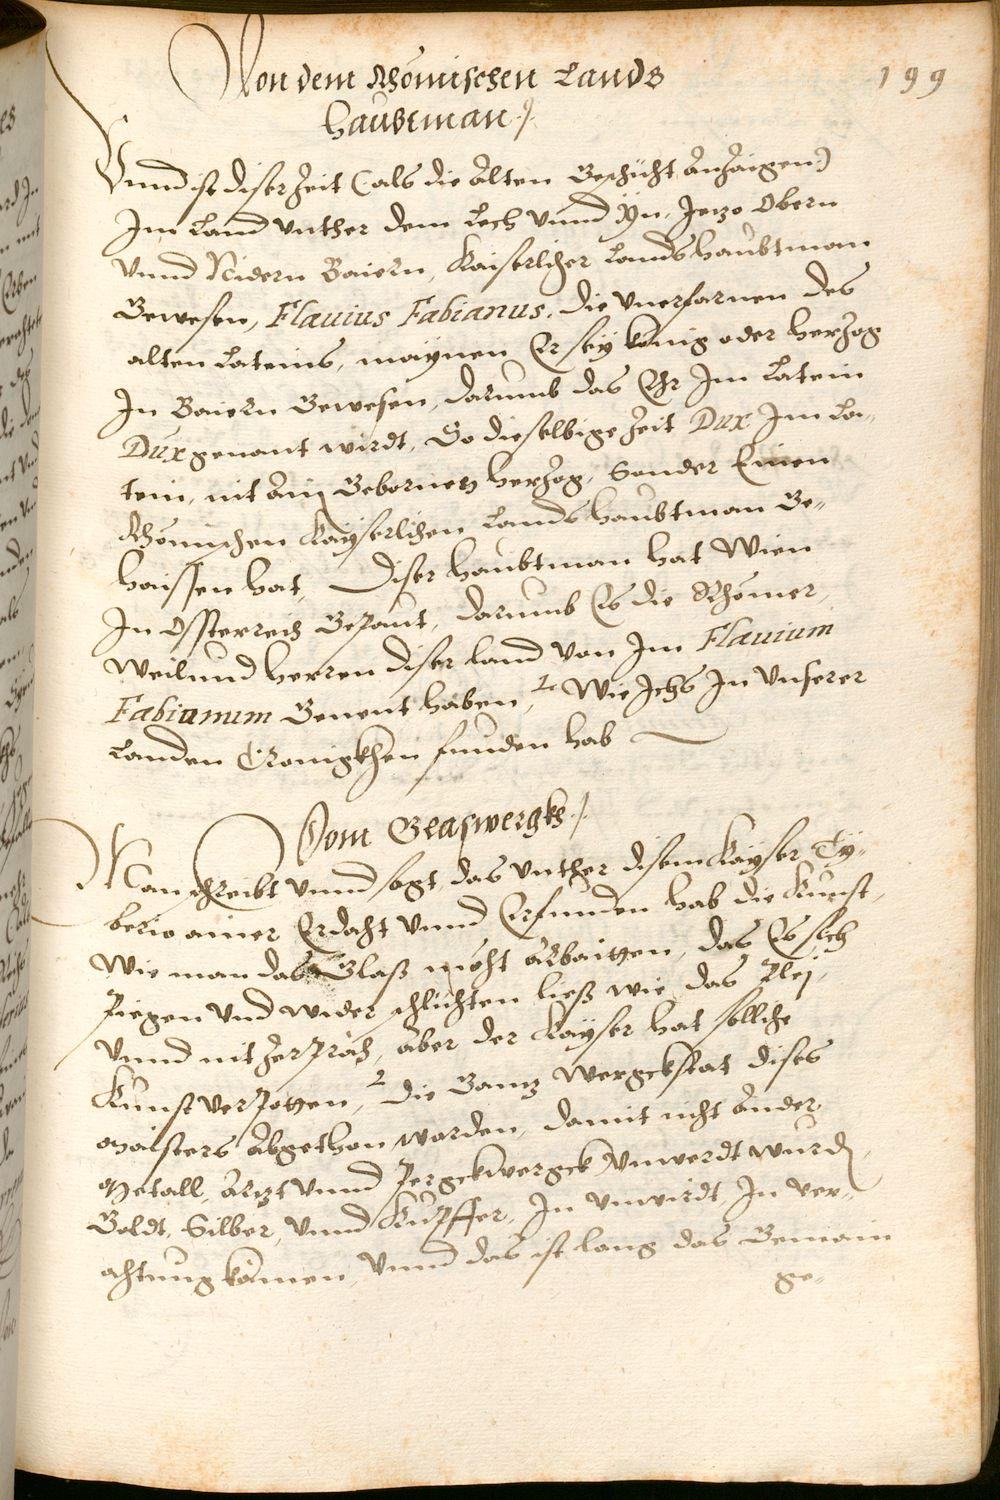 Von dem Rhömischen Lands
haubtman ./.
199
Vnnd ist diser Zeit (als die Alten Geschicht Anzaigen)
Im Land vnther dem Lech Vnnd Yn, Jezo Obern
Vnnd Nidern Baiern, Kaiserlicher Landshaubtman
Gewesen, Flauius Fabianus, die Vnerfarnen des
alten Lateins, maynen Er sey König oder Herzog
In Baiern Gewesen, darumb das Ehr Im Latein
Dux genant wirdt, So dieselbige Zeit Dux Im La-
tein, nit Ain Gebornen Herzog, Sonder Einen
Rhömischen Kayserlichen Landshaubtman Ge-
haissen hat, Diser haubtman hat Wien
In Össterreich Gepaut, darumb Es die Rhömer,
Weilund Herren diser Land von Im Flauium
Fabianum Genent haben, Wie Ichs In Vnserer
Landen Cronigkhen funden hab
Vom Glaswergkh ./.
Man schreibt Vnnd sagt, das Vnther disem Kayser Ty-
berio ainer Erdacht Vnnd Erfunden hab die Kunst,
Wie man das Glaß möcht Arbaitten, das Es sich
Piegen Vnd wider schlichten ließ wie das Plej,
Vnnd nit Zerprach, Aber der Kayser hat sollche
Kunst Verpotten, die Gannz Wergckstat dises
Maisters Abgethon worden, damit nicht Ander
Metall, Arzt Vnnd Pergckwergck Vnwerdt wurd,
Goldt, Silber, Vnnd Kupffer, In Vnwirdt, In ver-
achtung kämen, Vnnd das ist lang das Gemain
ge-